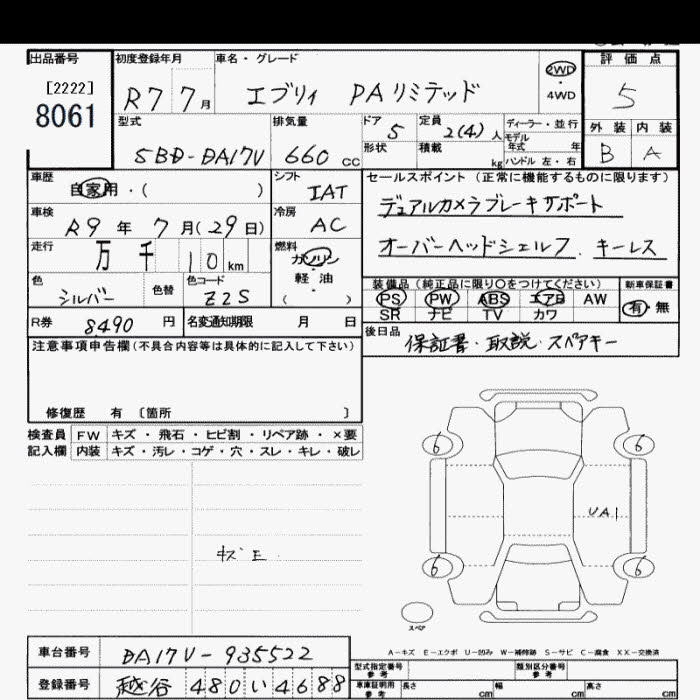 出品番号 初度登録年月 車名・グレード 評価点
[2222] R7 7月 エブリィ PAリミテッド 2WD・4WD 5
8061
型式 排気量 ドア 5 定員 2(4)人 ディーラー・並行 外装 内装
モデル年式 年
5BD-DA17V 660 CC 形状 積載 kg ハンドル 左・右 B A
車歴 自家用・( ) シフト IAT セールスポイント (正常に機能するものに限ります)
車検 R9年 7月(29日) 冷房 AC デュアルカメラブレーキサポート
走行 万 千 10 km 燃料 ガソリン・軽油 ( ) オーバーヘッドシェルフ. キーレス
色 シルバー 色替 色コード Z2S 装備品 (純正品に限り○をつけてください) 新車保証書
PS PW ABS エアB AW 有・無
SR ナビ TV カワ
R券 8490 円 名変通知期限 月 日 後日品 保証書・取説・スペアキー
注意事項申告欄(不具合内容等は具体的に記入して下さい)
修復歴 有 〔箇所 〕
検査員 FW キズ・飛石・ヒビ割・リペア跡・×要
記入欄 内装 キズ・汚レ・コゲ・穴・スレ・キレ・破レ
6 6
UA1
キズ E
6 6
スペア
A-キズ E-エクボ U-凹み W-補修跡 S-サビ C-腐食 XX-交換済
車台番号 DA17V-935522
型式指定番号 参考 類別区分番号 参考
登録番号 越谷 480 い 4688 車庫証明用 参考 長さ cm 幅 cm 高さ cm